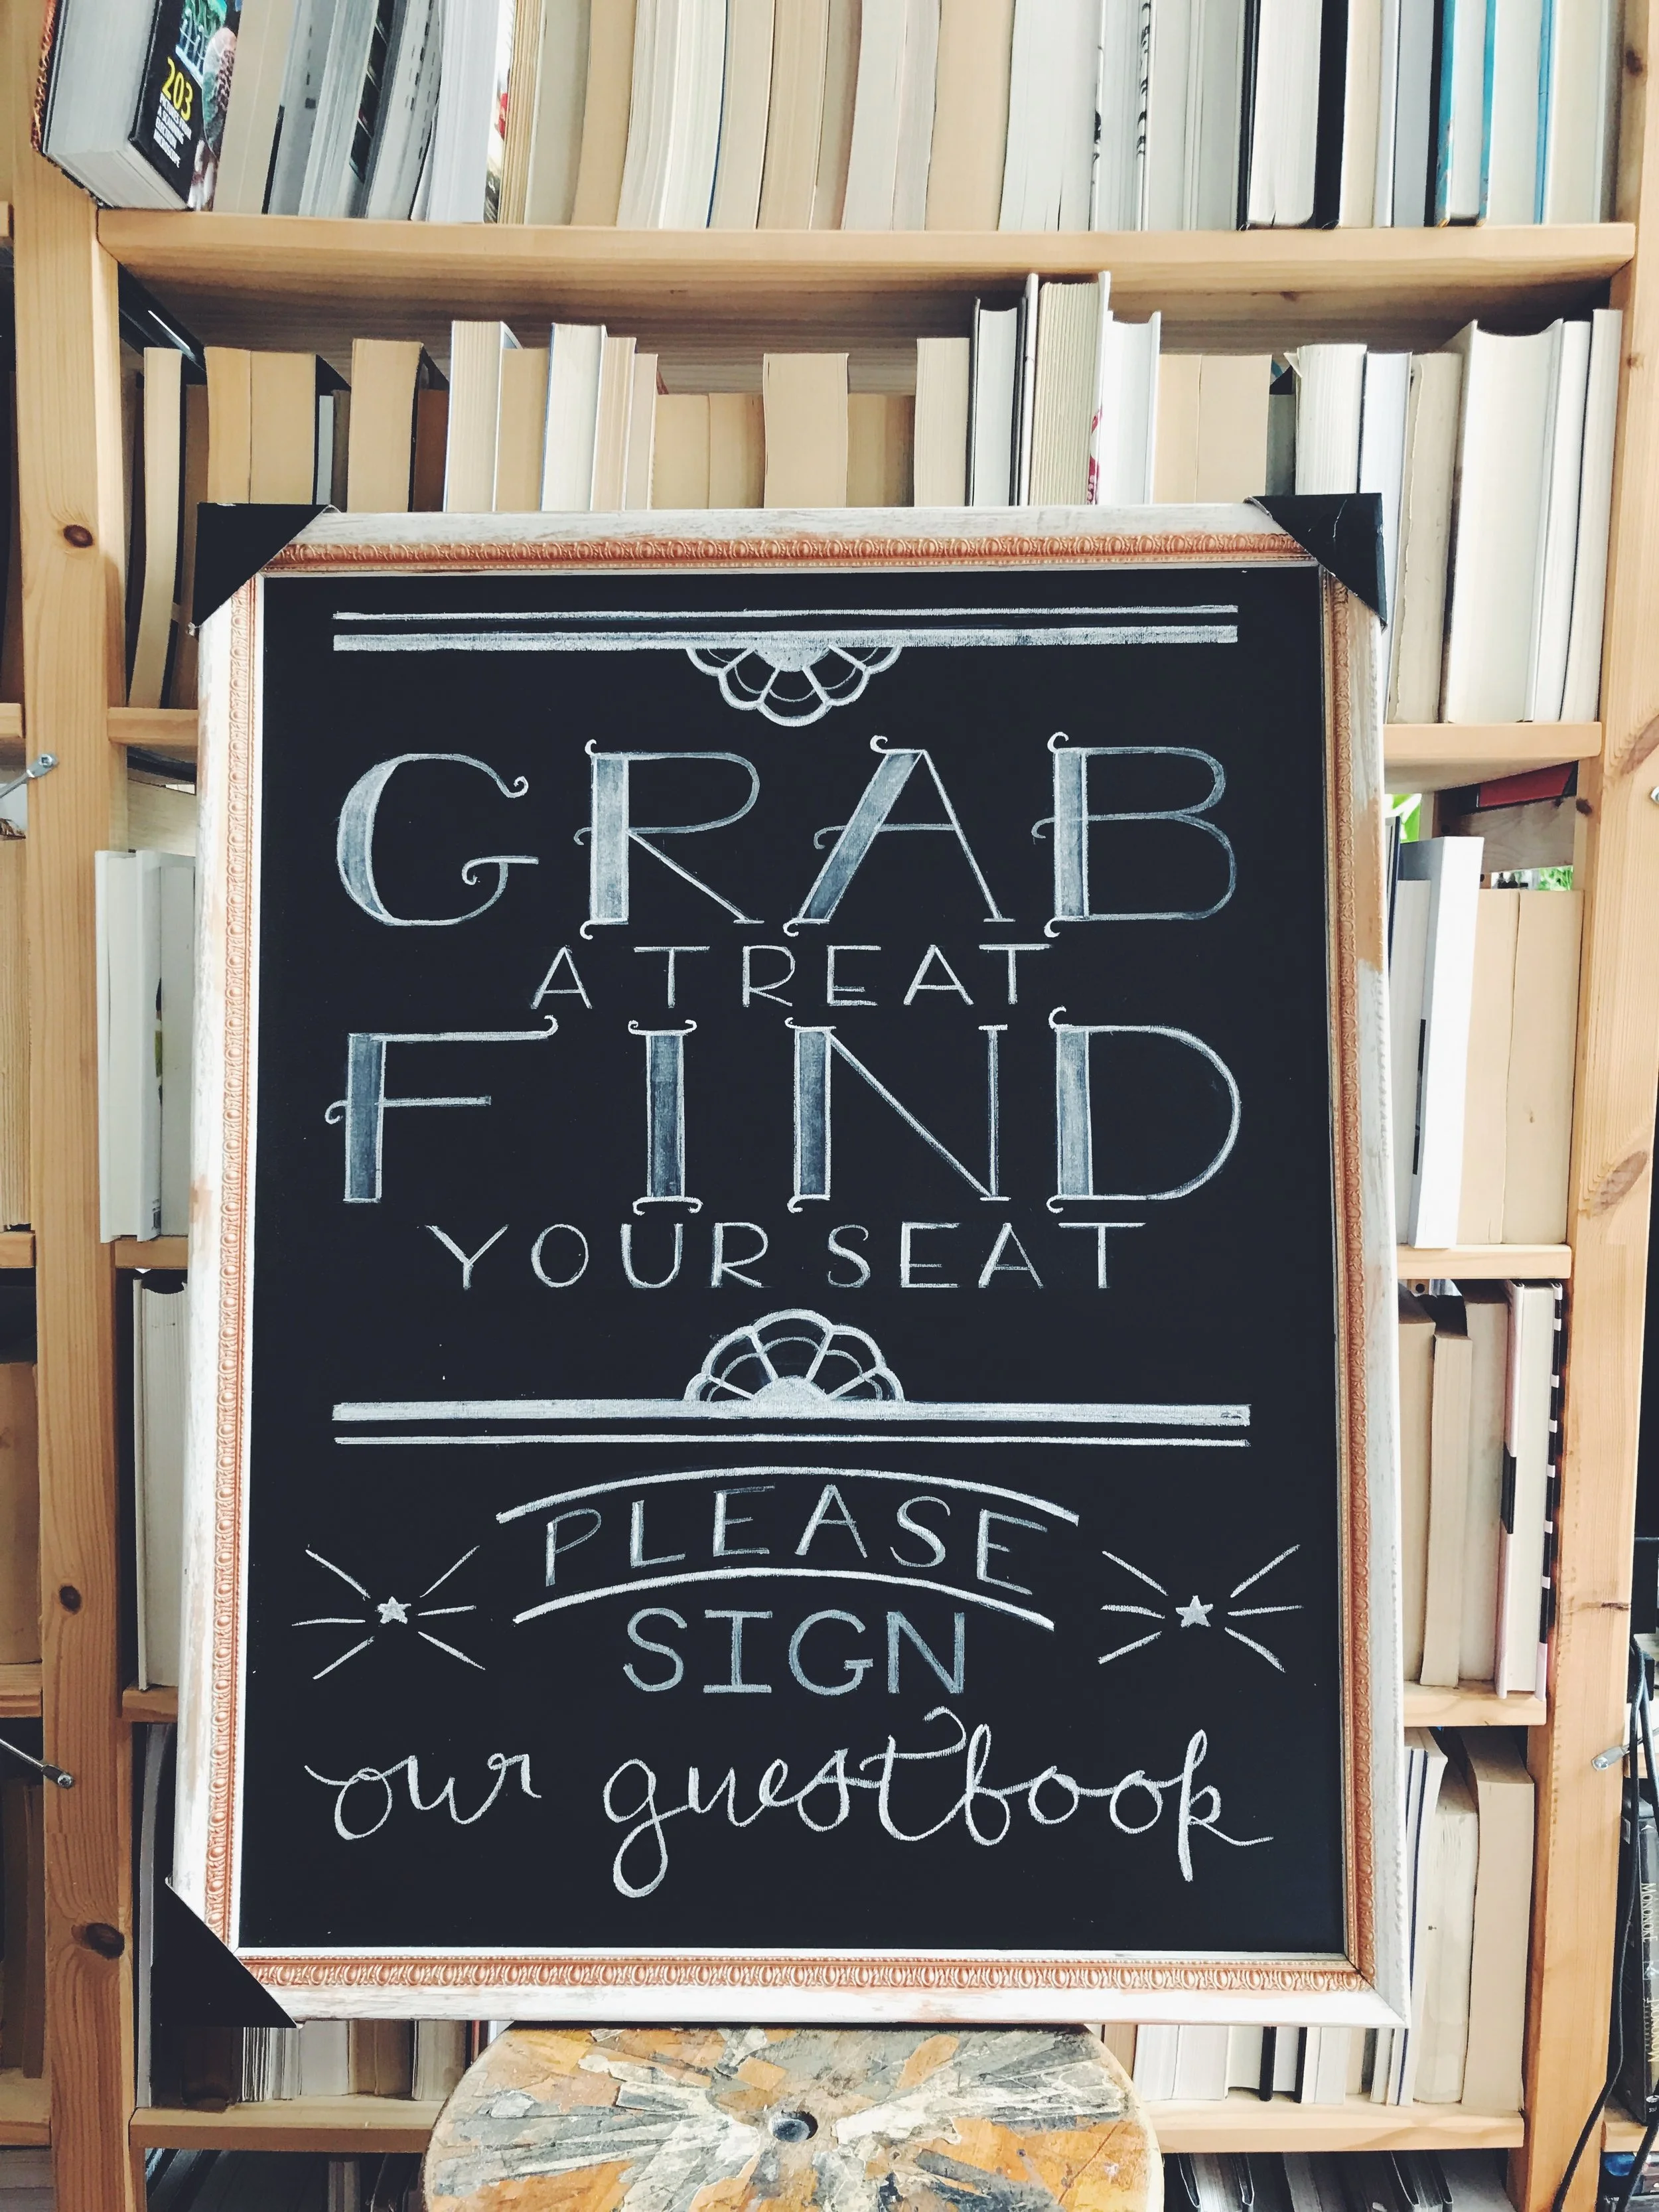 203
GRAB
A TREAT
FIND
YOUR SEAT
PLEASE
SIGN
our guestbook